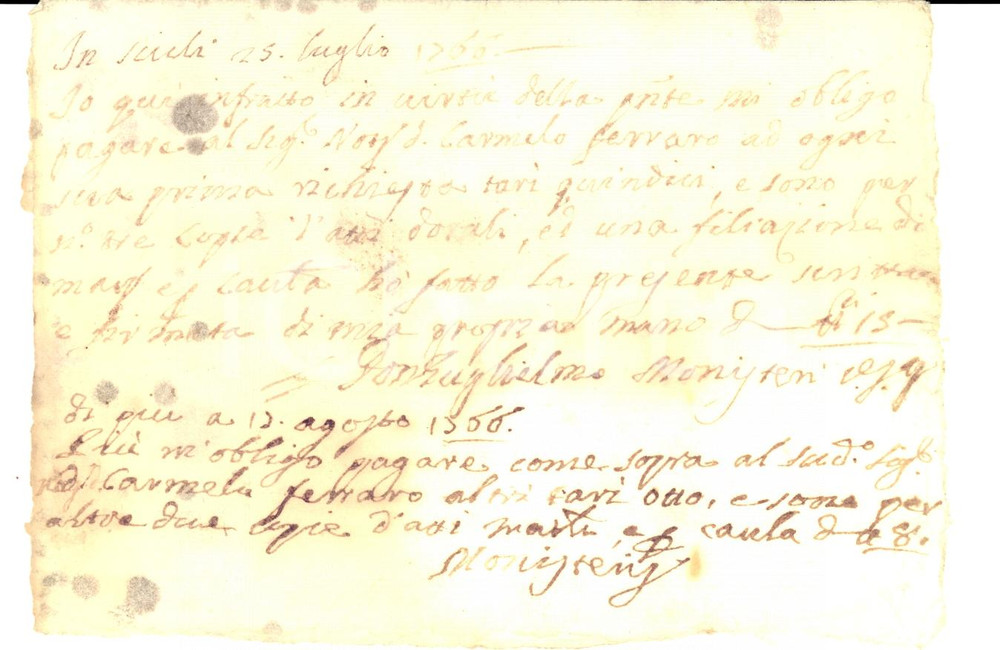 In Scicli 25. luglio 1766.
Io qui infratto in virtù della pnte mi obligo
pagare al Sig.r Not.r d. Carmelo Ferraro ad ogni
sua prima richiesta tarì quindici, e sono per
n.o tre copie d'atti dotali, ed una filiazione di
e p cautla hò fatto la presente
e firmata di mia propria mano d tt 15
Don Guglielmo Monisteri
di più a 13. agosto 1766.
Più m'obligo pagare come sopra al sud.o Sig.r
Carmelo Ferraro altri tarì otto, e sono per
altre due copie d'atti e p cautla d tt 8.
Monisteri